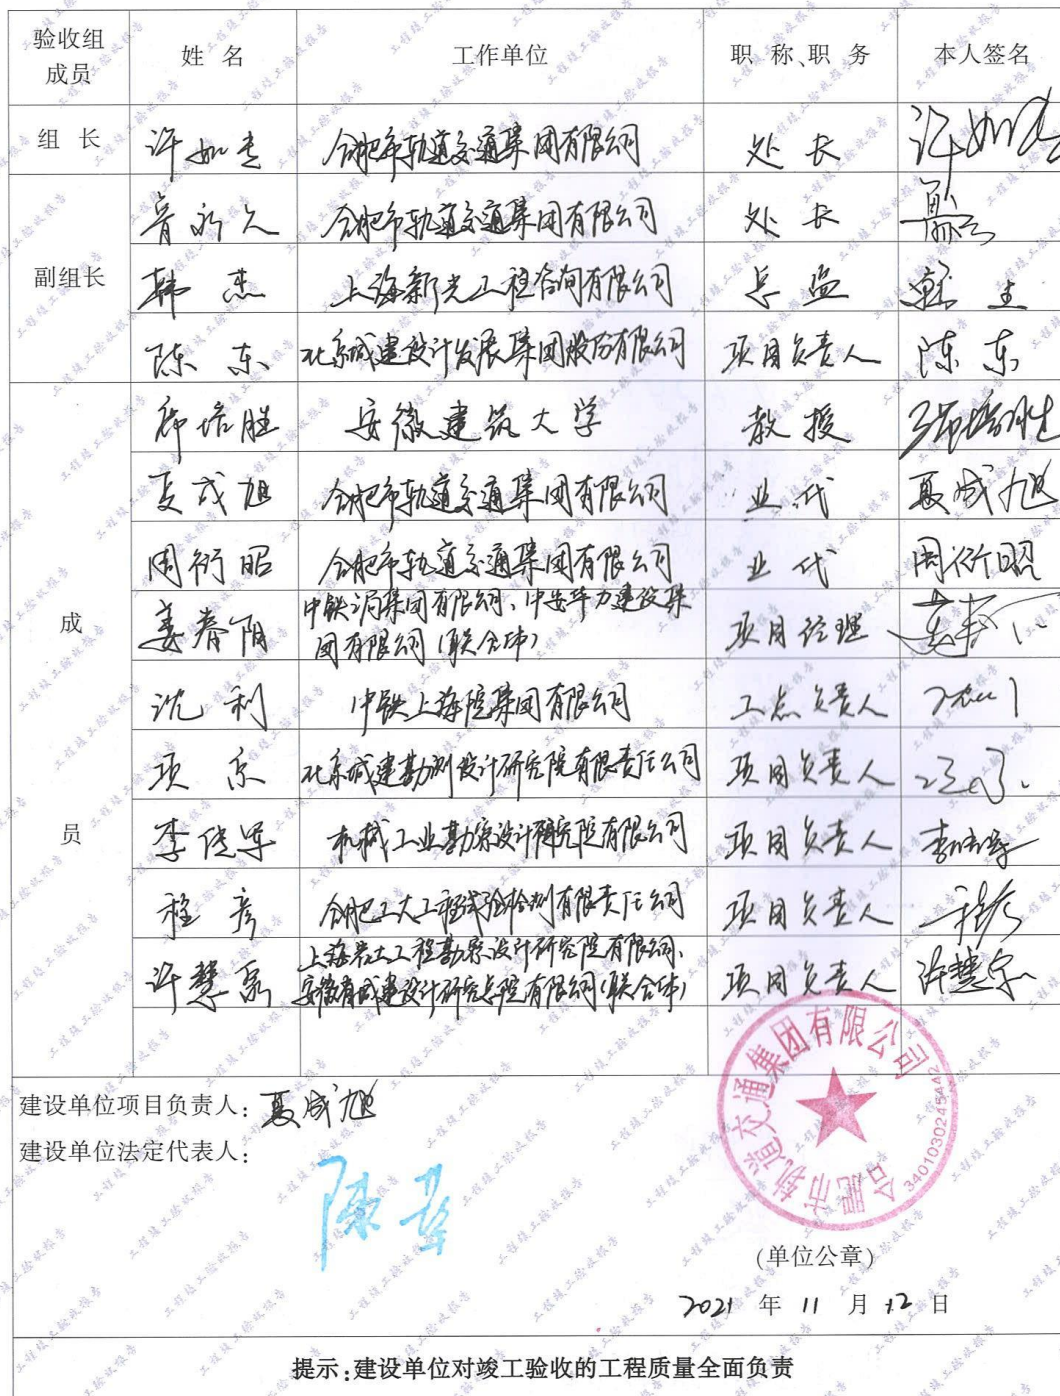 验收组成员 姓 名 工作单位 职 称、职 务 本人签名
组 长 许如 合肥市轨道交通集团有限公司 处 长 许如
永久 合肥市轨道交通集团有限公司 处 长
副组长 韩杰 上海新光工程咨询有限公司 总监 韩杰
陈东 北京城建设计发展集团股份有限公司 项目负责人 陈东
培胜 安徽建筑大学 教授 培胜
夏成旭 合肥市轨道交通集团有限公司 业代 夏成旭
周衍昭 合肥市轨道交通集团有限公司 业代 周衍昭
成 姜春阳 中铁 局集团有限公司、中安华力建设集 项目经理
团有限公司(联合体)
沈利 中铁上海院集团有限公司 工点负责人
项京 北京城建勘测设计研究院有限责任公司 项目负责人
员 李 军 机械工业勘察设计研究院有限公司 项目负责人
程彦 合肥工大工程试验检测有限责任公司 项目负责人 程彦
许慧 上海岩土工程勘察设计研究院有限公司、 项目负责人 许慧
安徽省城建设计研究总院有限公司(联合体)
建设单位项目负责人:夏成旭
建设单位法定代表人:
陈
合肥市轨道交通集团有限公司
(单位公章)
2021 年 11 月 12 日
提示:建设单位对竣工验收的工程质量全面负责
工程竣工验收报告